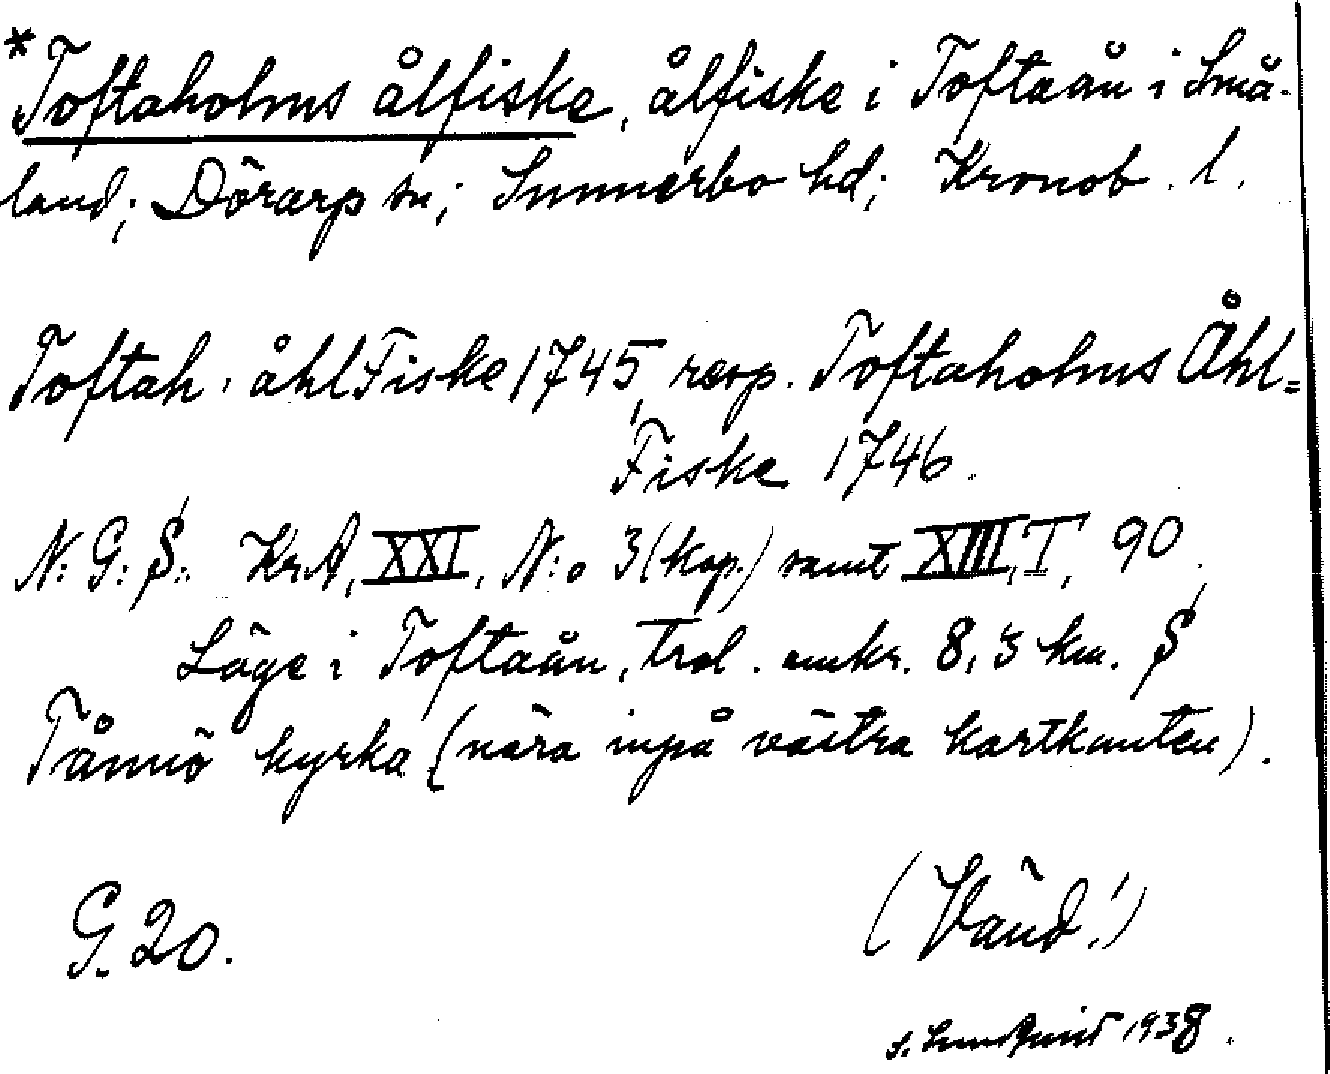 *Toftaholms ålfiske, ålfiske i Toftaån i Små-
land; Dörarp sn; Sunnerbo hd; Kronob. l.
Toftah. åhlFiske 1745, resp. Toftaholms Åhl=
Fiske 1746.
N: G: S:. KrA, XXI, N:o 3 (kop.) samt XIII, I, 90.
Läge i Toftaån, trol. omkr. 8,3 km. S
Tånnö kyrka (nära inpå västra kartkanten).
G. 20.
(Vänd!)
S. Sundqvist 1938.